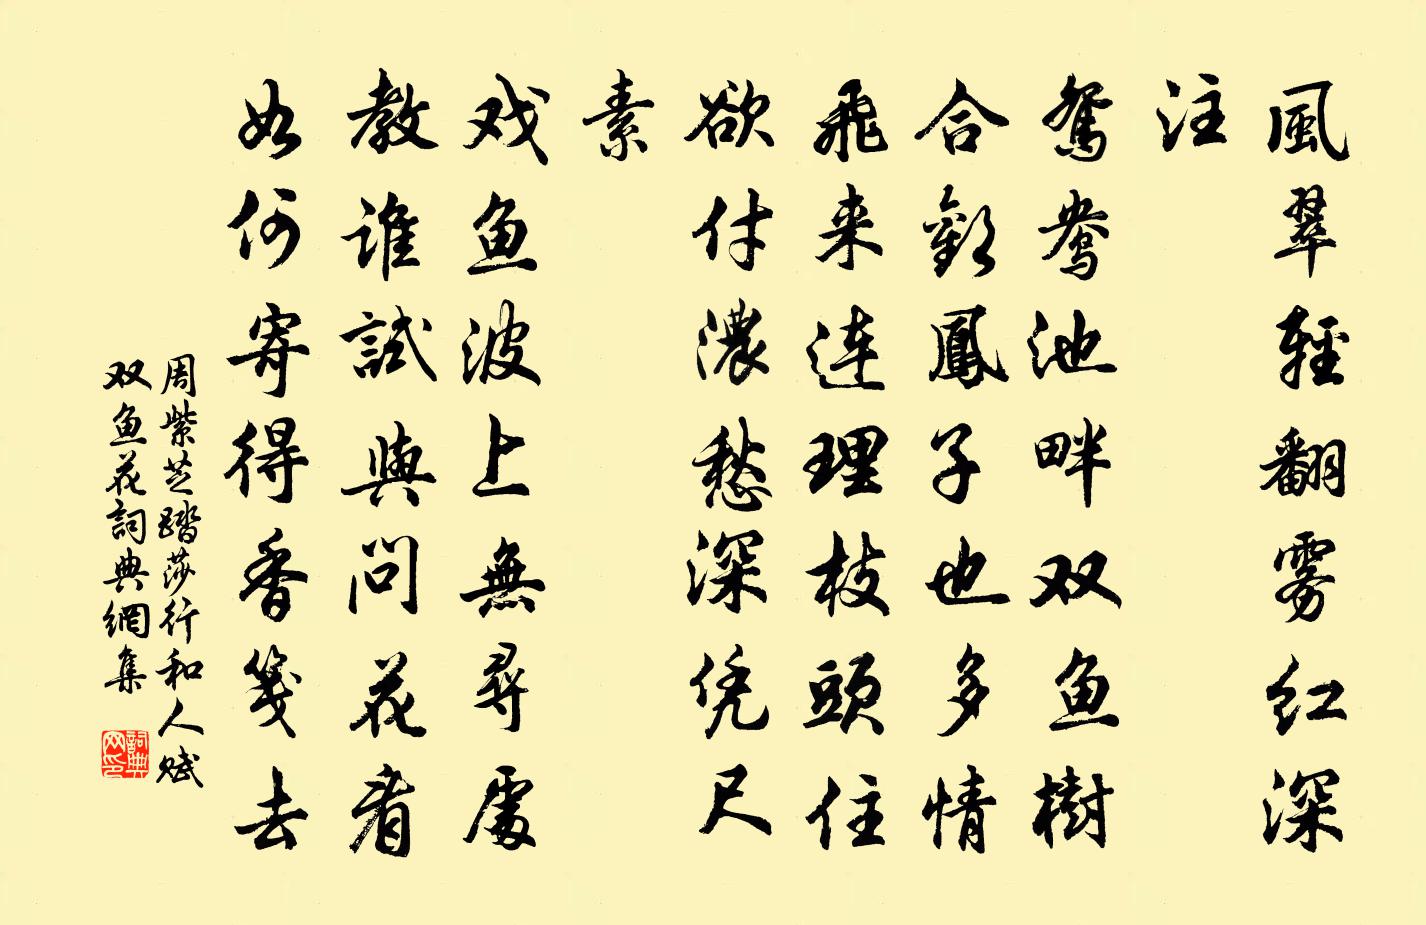 風翠輕翻雾红深
注
鴛鴦池畔双鱼樹
合歡鳳子也多情
飛来連理枝頭住
欲付濃愁深凭尺
素
戏鱼波上無尋處
教誰試與問花看
如何寄得香箋去
周紫芝踏莎行和人赋
双鱼花詞典網集
詞典
网印